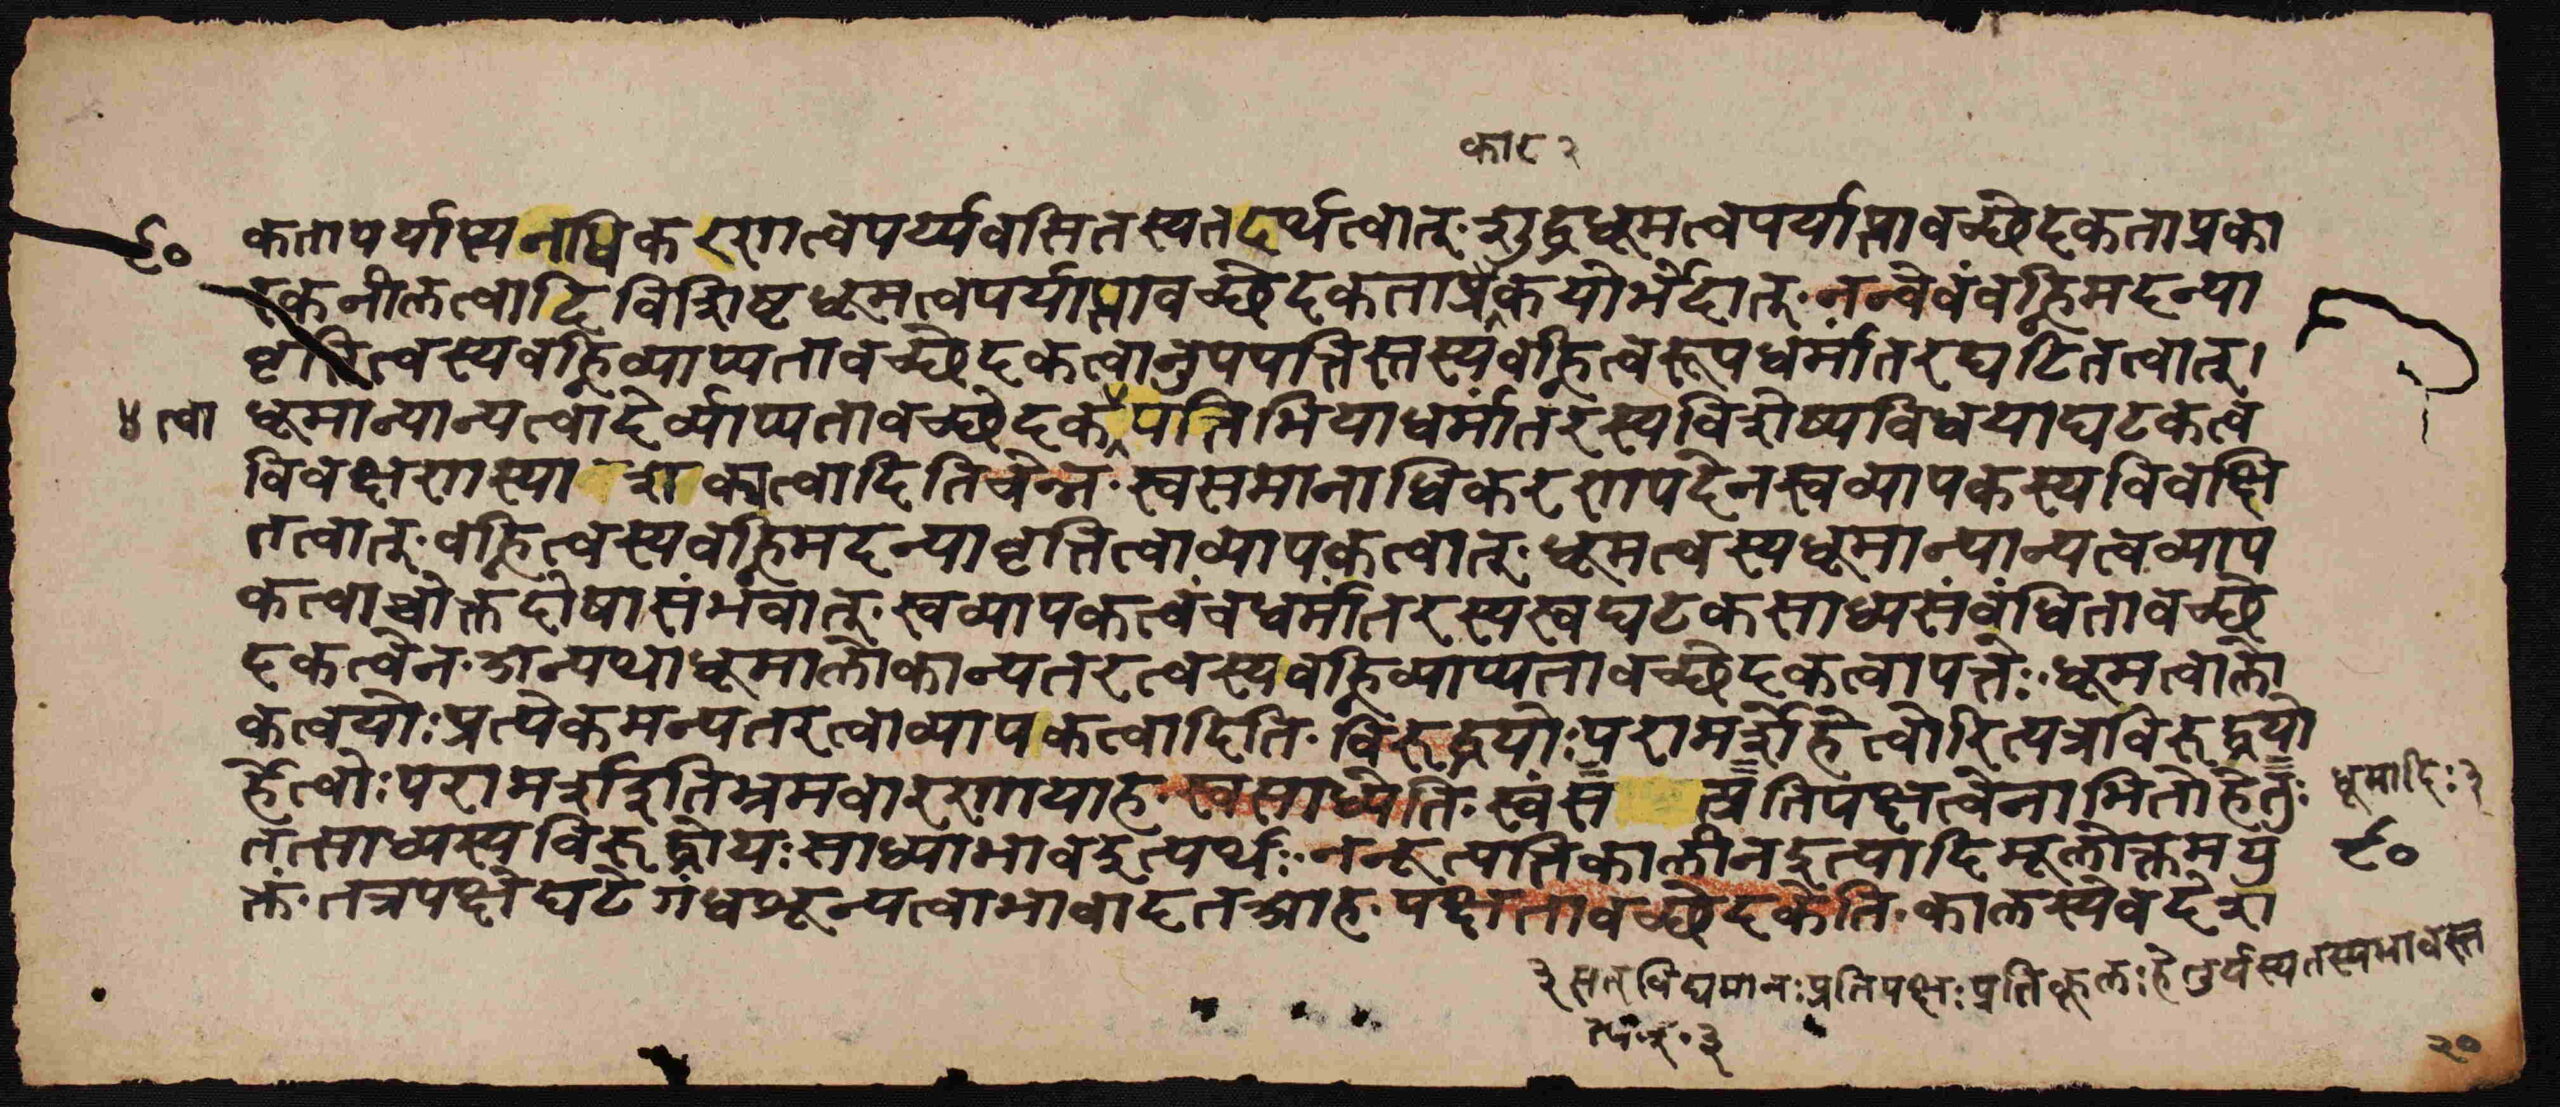 कार २
९० कतापर्याप्त्यनधिकरणत्वपर्य्यवसितस्यतदर्थत्वात् शुद्धधूमत्वपर्याप्तावच्छेदकताप्रका
रकनीलत्वादिविशिष्टधूमत्वपर्याप्तावच्छेदकताप्रकयोर्भेदात् नन्वेवंवह्निमदन्या
वृत्तित्वस्यवह्निव्याप्यतावच्छेदकत्वानुपपत्तिस्तस्यवह्नित्वरूपधर्मांतरघटितत्वात्।
४ त्वा धूमान्यान्यत्वादेर्व्याप्यतावच्छेदकपत्तिभियाधर्मांतरस्यविशेष्यविधयाघटकत्वं
विवक्षणस्या शक्यत्वादितिचेन्न स्वसमानाधिकरणपदेनस्वव्यापकस्यविवक्षि
तत्वात् वह्नित्वस्यवह्निमदन्यावृत्तित्वाव्यापकत्वात् धूमत्वस्यधूमान्यान्यत्वव्याप
कत्वाच्चोक्तदोषासंभवात् स्वव्यापकत्वंचधर्मांतरस्यस्वघटकसाध्यसंबंधितावच्छे
दकत्वेन अन्यथाधूमालोकान्यतरत्वस्यवह्निव्याप्यतावच्छेदकत्वापत्तेः धूमत्वालो
कत्वयोः प्रत्येकमन्यतरत्वाव्यापकत्वादिति विरुद्धयोः परामर्शेहेत्वोरित्यत्रविरुद्धयो
र्हेत्वोः परामर्शइतिभ्रमवारणायाह स्वसाध्येति स्वंस त्प्रतिपक्षत्वेनाभितोहेतुः धूमादिः २
तत्साध्यस्यविरुद्धोयः साध्याभावइत्यर्थः नन्हूत्पत्तिकालीनइत्यादिमूलोक्तमयु ९०
क्तं तत्रपक्षेघटेगंधशून्यत्वाभावादतआह पक्षतावच्छेदकेति कालस्येवदेशा
३ सन् विद्यमानः प्रतिपक्षः प्रतिकूलः हेतुर्यस्यतस्यभावस्त
२०